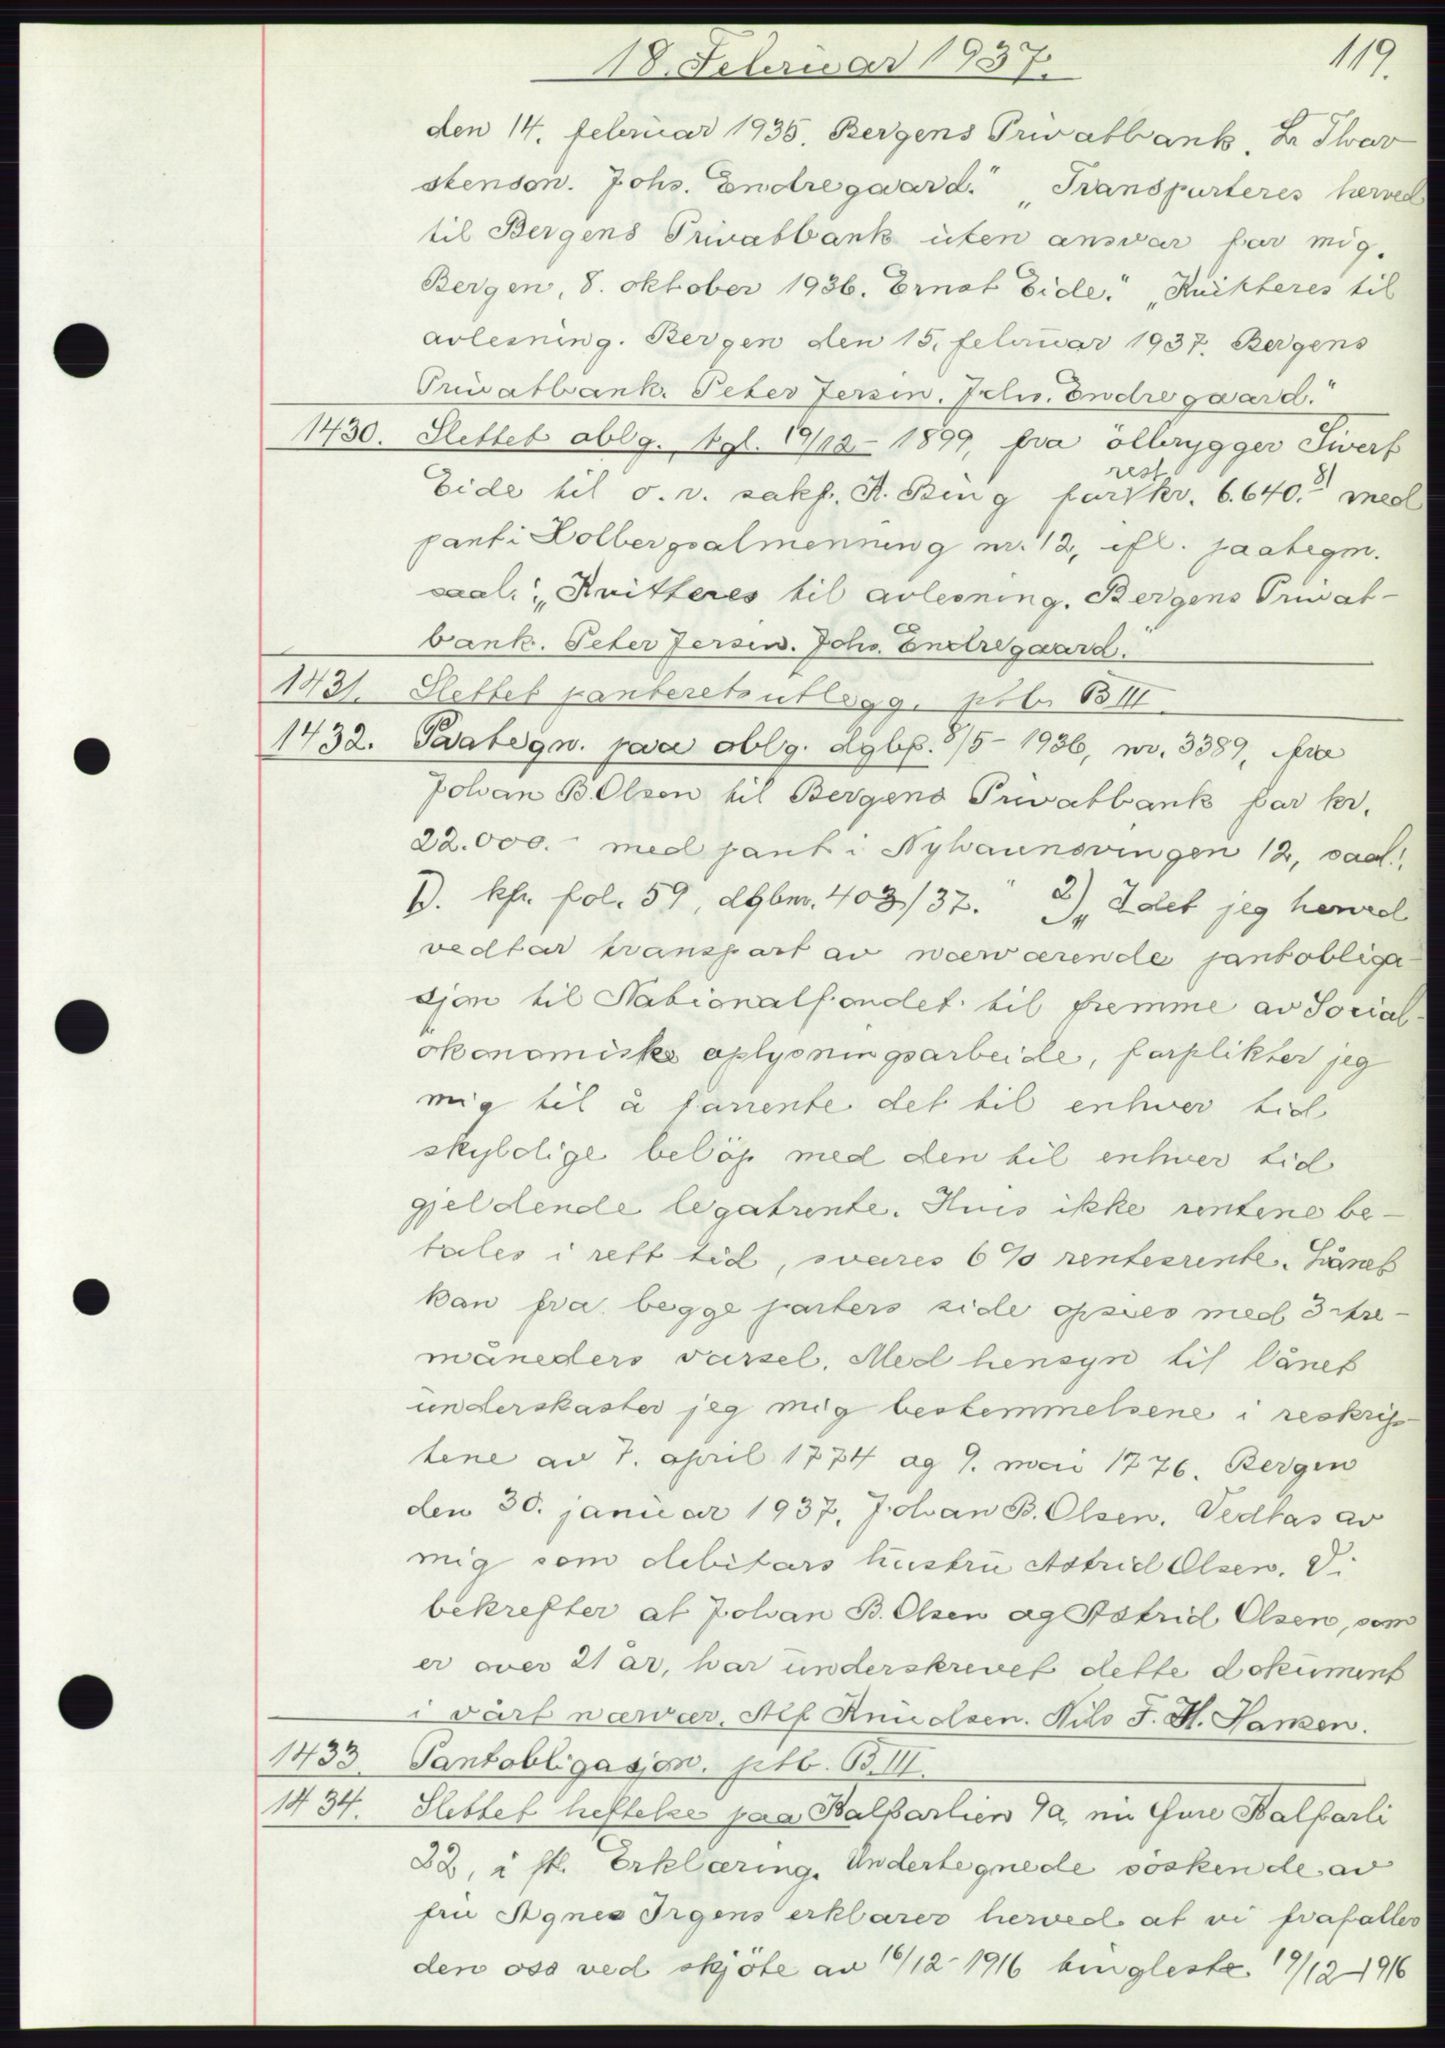 18. Februar 1937.
119.
den 14. februar 1935. Bergens Privatbank. Lr Thor
stenson. Johs. Endregaard." „Transporteres herved
til Bergens Privatbank uten ansvar for mig.
Bergen, 8. oktober 1936. Ernst Eide." „Kvitteres til
avlesning. Bergen den 15. februar 1937. Bergens
Privatbank. Peter Jersin. Johs. Endregaard."
1430. Slettet oblg., tgl. 19/12-1899, fra ölbrygger Sivert
Eide til o.r. sakf. A. Bing for rest kr. 6.640.81 med
pant i Holbergsalmenning nr. 12, ifl. paategn.
saal.: „Kvitteres til avlesning. Bergens Privat-
bank. Peter Jersin. Johs. Endregaard."
1431. Slettet panteretsutlegg. ptb. B III.
1432. Paategn. paa oblg. dgbf. 8/5-1936, nr. 3389, fra
Johan B. Olsen til Bergens Privatbank for kr.
22.000.- med pant i Nyhaunsvingen 12, saal.:
1). kfr. fol. 59, dgbnr. 403/37." 2) „Idet jeg herved
vedtar transport av nærværende pantobliga-
sjon til Nationalfondet til fremme av Social-
ökonomiske oplysningsarbeide, forplikter jeg
mig til å forrente det til enhver tid
skyldige belöp med den til enhver tid
gjeldende legatrente. Hvis ikke rentene be-
tales i rett tid, svares 6% rentesrente. Lånet
kan fra begge parters side opsies med 3-tre-
måneders varsel. Med hensyn til lånet
underkaster jeg mig bestemmelsene i reskrip-
tene av 7. april 1774 og 9. mai 1776. Bergen
den 30. januar 1937. Johan B. Olsen. Vedtas av
mig som debitors hustru Astrid Olsen. Vi
bekrefter at Johan B. Olsen og Astrid Olsen, som
er over 21 år, har underskrevet dette dokument
i vårt nærvær. Alf Knudsen. Nils F. H. Hansen.
1433. Pantobligasjon. ptb. B. III.
1434. Slettet heftelse paa Kalfarlien 9a, nu Övre Kalfarli
22, i fl. Erklæring. Undertegnede söskende av
fru Agnes Irgens erklærer herved at vi frafaller
den oss ved skjöte av 16/12-1916 tinglest 19/12-1916